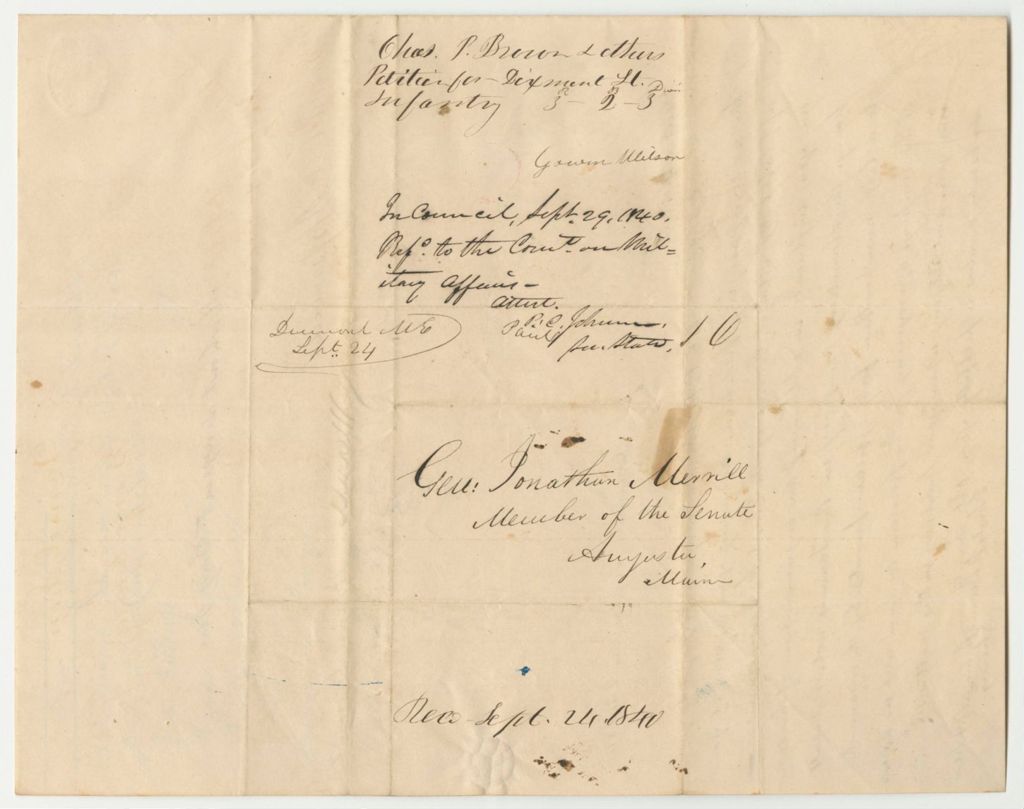 Chas. P. Brown & others
Petition for – Dixmont Lt.
Infantry 3 – 2 – 3 Divn
In Council, Sept. 29, 1840.
Refd. to the Comte. on Mil=
itary Affairs –
Attest.
P. C. Johnson,
Sec. State,
Dixmont ME
Sept. 24
Gen: Jonathan Merrill
Member of the Senate
Augusta,
Maine
Recd Sept. 24. 1840